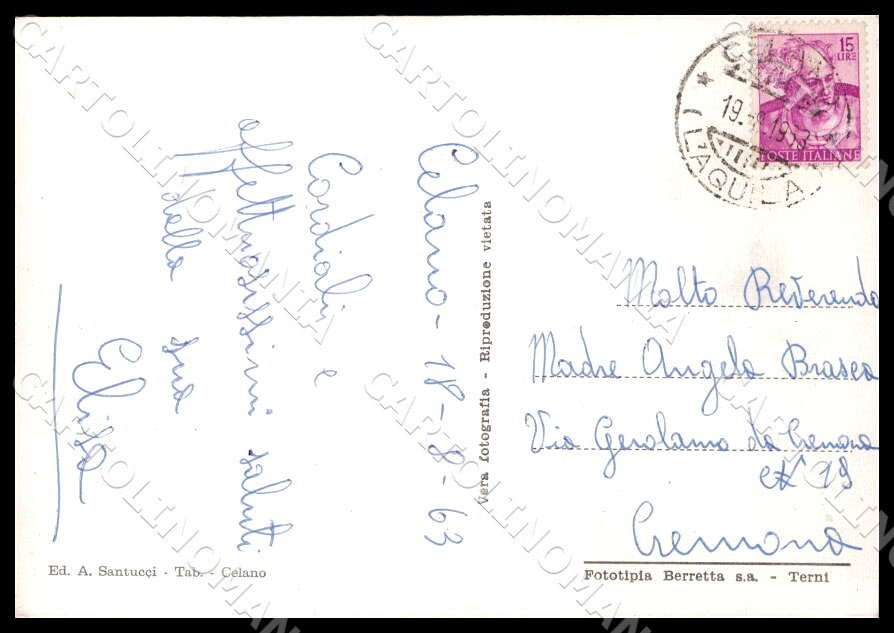 Celano - 18-8-63
Cordiali e
affettuosissimi saluti
della sua
Elisa
Ed. A. Santucci - Tab. - Celano
Vera fotografia - Riproduzione vietata
15
LIRE
POSTE ITALIANE
19. 1963
(L'AQUILA)
Molto Reverenda
Madre Angela Brasea
Via Gerolamo da Cremona
N 19
Cremona
Fototipia Berretta s.a. - Terni
CARTOLINOMANIA